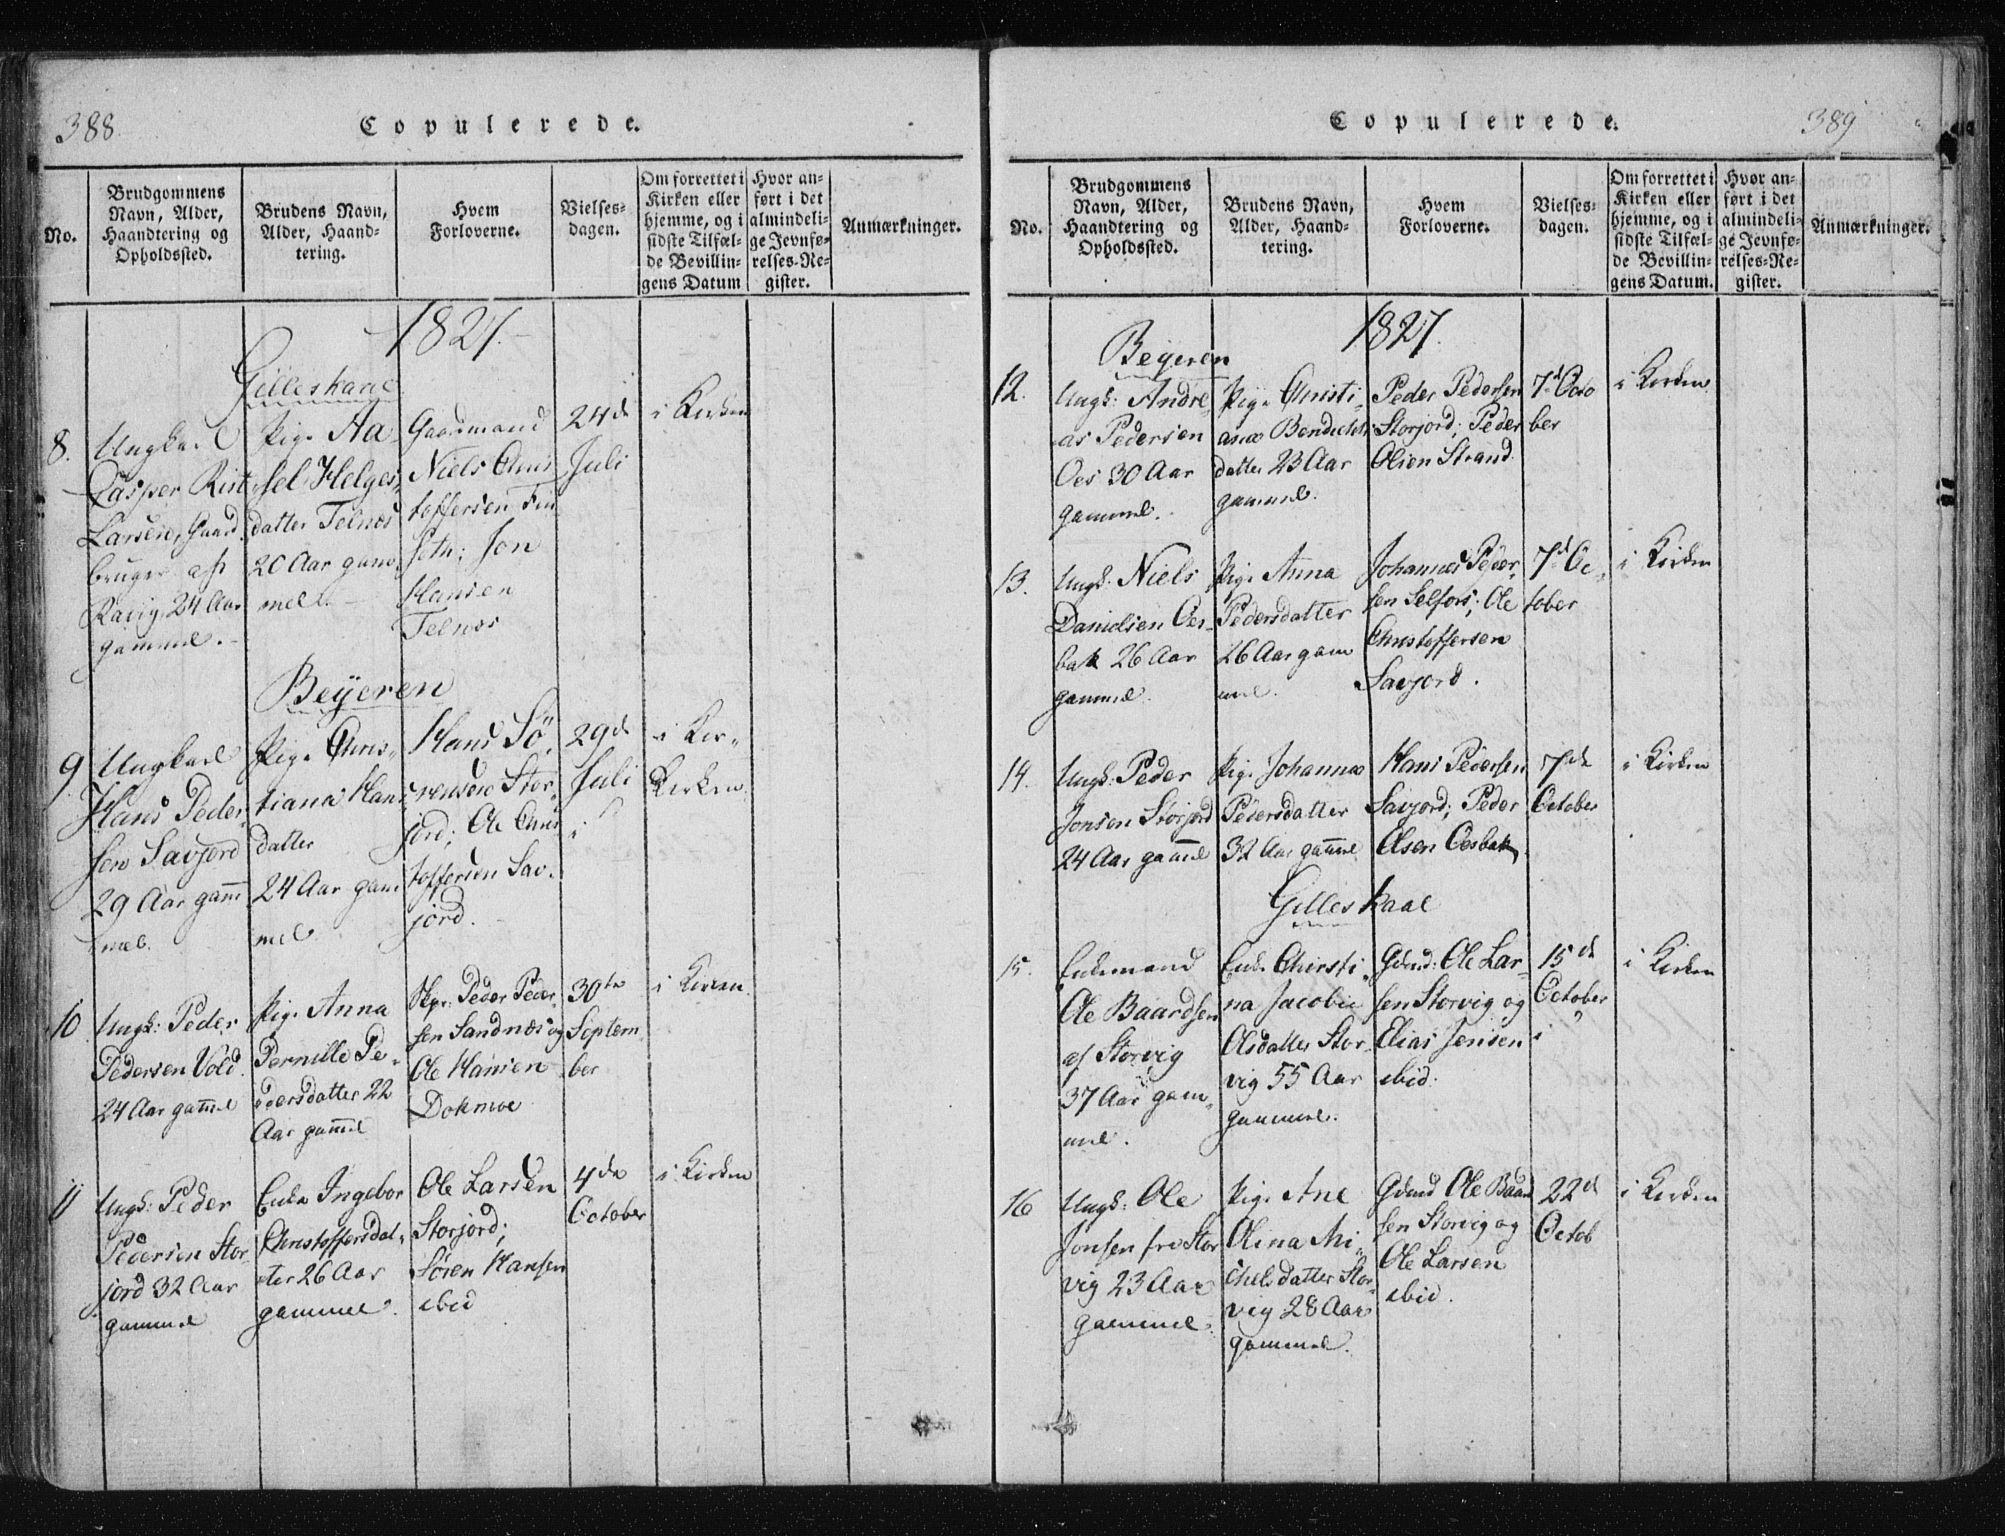 388.
Copulerede.
No.
Brudgommens
Navn, Alder,
Haandtering og
Opholdssted.
Brudens Navn,
Alder, Haand-
tering.
Hvem
Forloverne.
Vielses-
dagen.
Om forrettet i
Kirken eller
hjemme, og i
sidste Tilfæl-
de Bevillin-
gens Datum
Hvor an-
ført i det
almindeli-
ge Jevnfø-
relses-Re-
gister.
Anmærkninger.
1827.
Gilleskaal
8.
Ungkarl
Casper Rist
Larsen, Gaard
bruger af
24 Aar
gammel.
Pige Aa-
sel Helges
datter Telnæs
20 Aar gam
mel.
Gaardmand
Niels Chris
toffersen Fin
seth; Jon
Hansen
Telnæs
24de
Juli
i Kirken
Beyeren
9
Ungkarl
Hans Peder-
sen Savjord
29 Aar gam̅
mel.
Pige Chris-
tiana Hans
datter
24 Aar gam
mel
Hans Sö-
rensen Stor-
jord; Ole Chris
toffersen Sav-
jord.
29de
Juli
i Kir-
Kirken
10
Ungk: Peder
Pedersen Vold
24 Aar gam̅el
Pige Anna
Pernille Pe-
dersdatter 22
Aar gam̅el
Skpr: Peder Peder-
sen Sandnæs og
Ole Hansen
Dokmoe
30te
Septem-
ber
i Kirken
11
Ungk: Peder
Pedersen Stor-
jord 32 Aar
gammel
Enke Ingebor
Christoffersdat-
ter 26 Aar
gammel.
Ole Larsen
Storjord;
Sören Hansen
ibid
4de
October
i Kirken
Copulerede.
389
No.
Brudgommens
Navn, Alder,
Haandtering og
Opholdssted.
Brudens Navn,
Alder, Haand-
tering.
Hvem
Forloverne.
Vielses-
dagen.
Om forrettet i
Kirken eller
hjemme, og i
sidste Tilfæl-
de Bevillin-
gens Datum.
Hvor an-
ført i det
almindeli-
ge Jevnfø-
relses-Re-
gister.
Anmærkninger.
1827.
Beyeren
12.
Ungk: Andre-
as Pedersen
Oes 30 Aar
gammel.
Pige Christi-
ana Bendichts
datter 23 Aar
gammel.
Peder Pedersen
Storjord; Peder
Olsen Strand.
7de Octo
ber
i Kirken
13.
Ungk. Niels
Danielsen Oes-
bak 26 Aar
gammel.
Pige Anna
Pedersdatter
26 Aar gam
mel.
Johannes Peder-
sen Selfors; Ole
Christoffersen
Savjord.
7de Oc-
tober
i Kirken
14.
Ungk: Peder
Jonsen Storjord
24 Aar gam̅el
Pige Johanna
Pedersdatter
32 Aar gam̅el
Hans Pedersen
Savjord; Peder
Olsen Oesbak
7de
October
i Kirken
Gilleskaal
15.
Enkemand
Ole Baardsen
af Storvig
37 Aar gam-
mel.
Enke Christi-
na Jacobie
Olsdatter Stor-
vig 55 Aar
gammel.
Gdmd: Ole Lar-
sen Storvig og
Elias Jensen
ibid.
15de
October
i Kirken
16
Ungk: Ole
Jonsen fra Stor
vig 23 Aar
gammel.
Pige Ane
Olina Mi-
chelsdatter Stor-
vig 28 Aar
gammel.
Gdmd Ole Baard
sen Storvig og
Ole Larsen
ibid.
22de
Octob
i Kirken